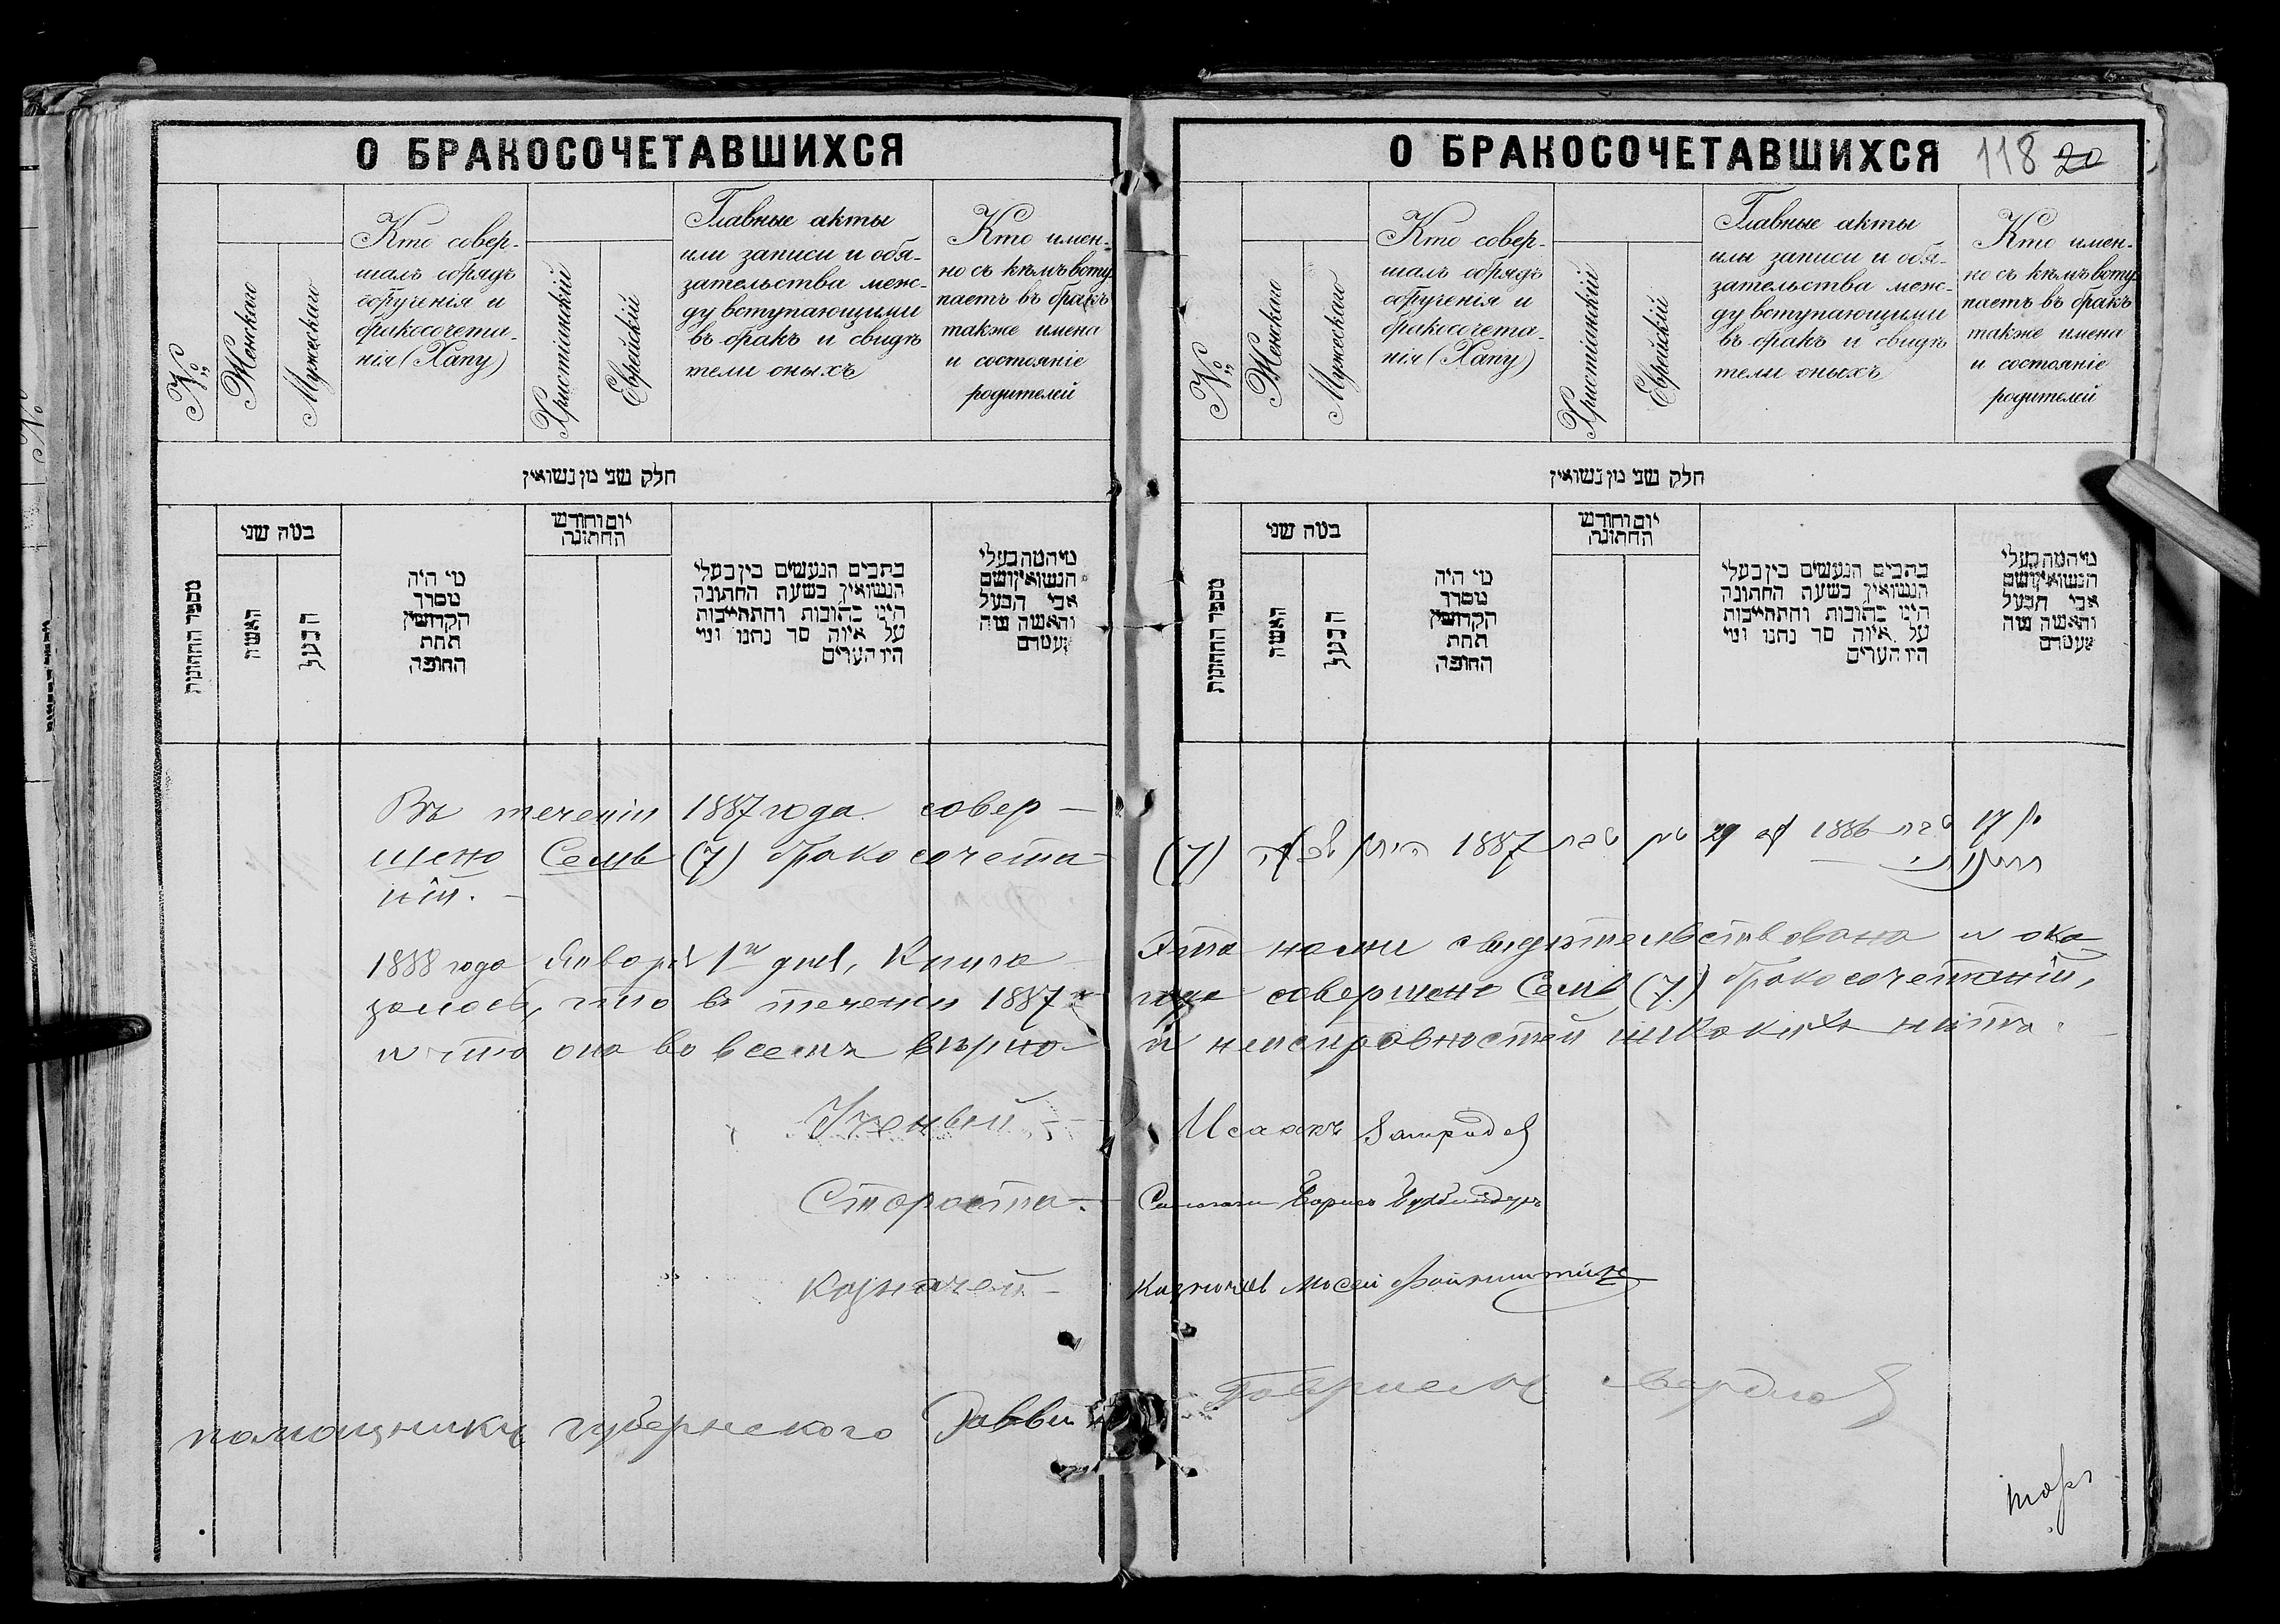 О БРАКОСОЧЕТАВШИХСЯ
№
Женскаго
Мужескаго
Кто совер-
шалъ обрядъ
обрученія и
бракосочета-
нія (Хапу)
Христіанскій
Еврейскій
Главные акты
или записи и обя-
зательства меж-
ду вступающими
въ бракъ и свидѣ
тели оныхъ
Кто имен-
но съ кѣмъ всту
паетъ въ бракъ
также имена
и состояніе
родителей
חלק שני מן נשואין
מספר החתונות
במה שני
האשה
הבעל
מי היה
מסדר
הקדושין
תחת
החופה
יום וחודש
החתונה
כתבים הנעשים בין בעלי
הנשואין בשעה החתונה
היינו כתובות והתחייבות
על איזה סך נתנו ומי
היו העדים
מי המה בעלי
הנשואין ושם
אבי הבעל
והאשה ומה
מעמדם
Въ теченіи 1887 года совер-
шено Семь (7) бракосочета-
ній.
О БРАКОСОЧЕТАВШИХСЯ 118 20
№
Женскаго
Мужескаго
Кто совер-
шалъ обрядъ
обрученія и
бракосочета-
нія (Хапу)
Христіанскій
Еврейскій
Главные акты
или записи и обя-
зательства меж-
ду вступающими
въ бракъ и свидѣ
тели оныхъ
Кто имен-
но съ кѣмъ всту
паетъ въ бракъ
также имена
и состояніе
родителей
חלק שני מן נשואין
מספר החתונות
במה שני
האשה
הבעל
מי היה
מסדר
הקדושין
תחת
החופה
יום וחודש
החתונה
כתבים הנעשים בין בעלי
הנשואין בשעה החתונה
היינו כתובות והתחייבות
על איזה סך נתנו ומי
היו העדים
מי המה בעלי
הנשואין ושם
אבי הבעל
והאשה ומה
מעמדם
17 1886 29 1887 (7)
1888 года Января 1го дня, Книга Эта нами свидѣтельствована и ока
залось, что въ теченіи 1887го года совершено Семь (7) бракосочетаній,
и что она во всемъ вѣрно и неисправностей никакихъ нѣтъ.
Ученый Исаакъ
Староста Борисъ
Казначей Казначей Мосей Файнштейнъ
помощникъ губернскаго Равви Гавріелъ